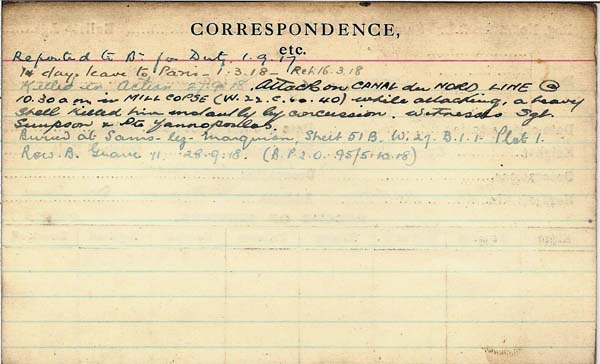 CORRESPONDENCE,
etc.
Reported to Bn for Duty. 1.9.17
14 days leave to Paris - 1.3.18 - Ret 16.3.18
Killed in Action 27.9.18 Attack on CANAL du NORD LINE @
10.30 a.m in MILL COPSE (W.22.C.60.40) while attacking, a heavy
shell killed him instantly by concussion. Witnesses Sgt.
Simpson & Pte Yannopoulos.
Buried at Sains-lez-Marquion, Sheet 51B. W.27.B.1.1. Plot 1.
Row. B. Grave 11. 28.9.18. (B.P.2.0. 95/5.10.18)